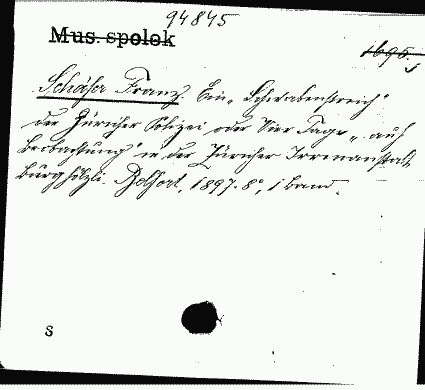 94845
Mus. spolek
1695.
Schäfer Franz. Ein „Schwabenstreich"
der Züricher Polizei oder Vier Tage „auf
Beobachtung" in der Züricher Irrenanstalt
Burghölzli. Belfort, 1897. 8°, 1 Band.
S